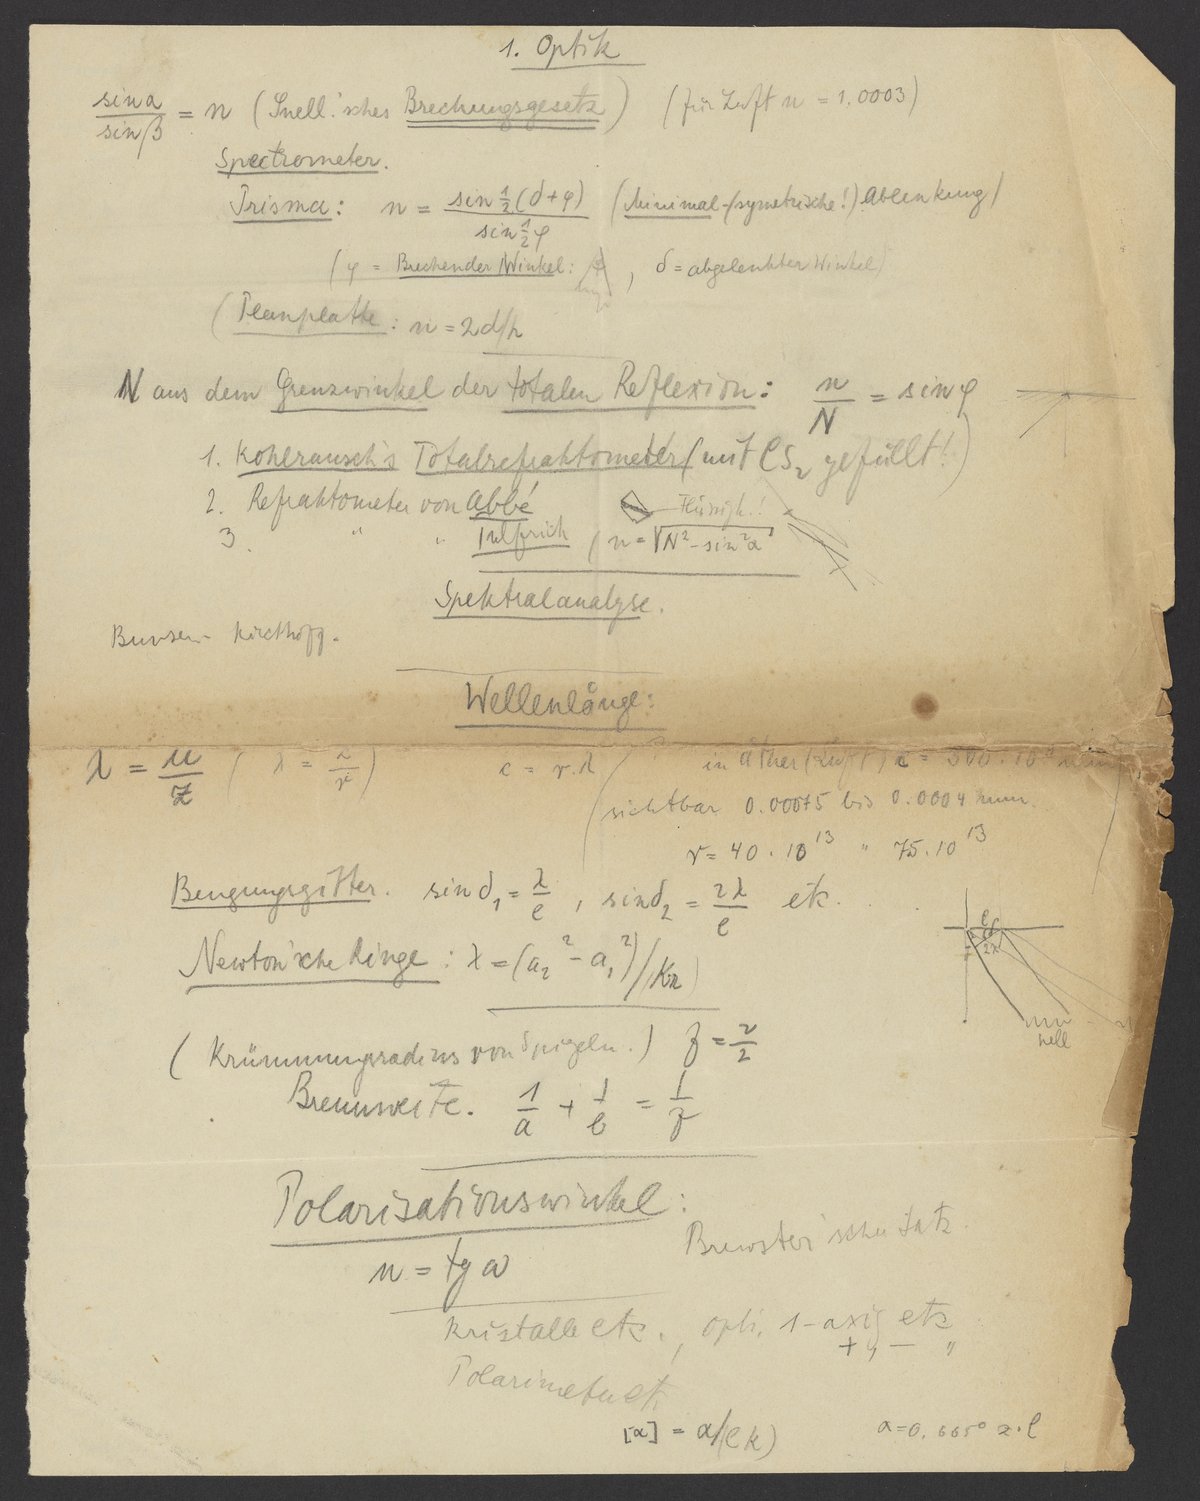 1. Optik
sin α / sin β = n (Snell'sches Brechungsgesetz) (für Luft n = 1.0003)
Spectrometer.
Prisma: n = sin ½ (δ+φ) / sin ½ φ (Minimal-(symetrische!) Ablenkung)
(φ = Brechender Winkel: , δ = abgelenkter Winkel)
(Planplatte: n = 2d/h
N aus dem Grenzwinkel der totalen Reflexion: n/N = sin φ
1. Kohlrausch's Totalrefraktometer (mit CS₂ gefüllt!)
2. Refraktometer von Abbé Flüssigk.!
3. " " Pulfrich (n = √N² - sin² α
Spektralanalyse.
Bunsen - Kirchhoff.
Wellenlänge:
λ = u/z (λ = ) c = ν.λ in Äther (Luft) c = 300.10⁹ mm
(sichtbar 0.00075 bis 0.0004 mm.
ν = 40 . 10¹³ " 75.10¹³
Beugungsgitter. sin δ₁ = λ/e , sin δ₂ = 2λ/e etc. . .
e
2λ
Newton'sche Ringe : λ = (a₂² - a₁²)/(Kr)
hell
(Krümmungsradius von Spiegeln.) f = r/2
Brennweite. 1/a + 1/b = 1/f
Polarisationswinkel:
Brewster'scher Satz.
n = tg α
Kristalle etc., opti. 1-axig etc
+, - "
Polarimeter etc.
[α] = α/(l k) α=0.665° z.l